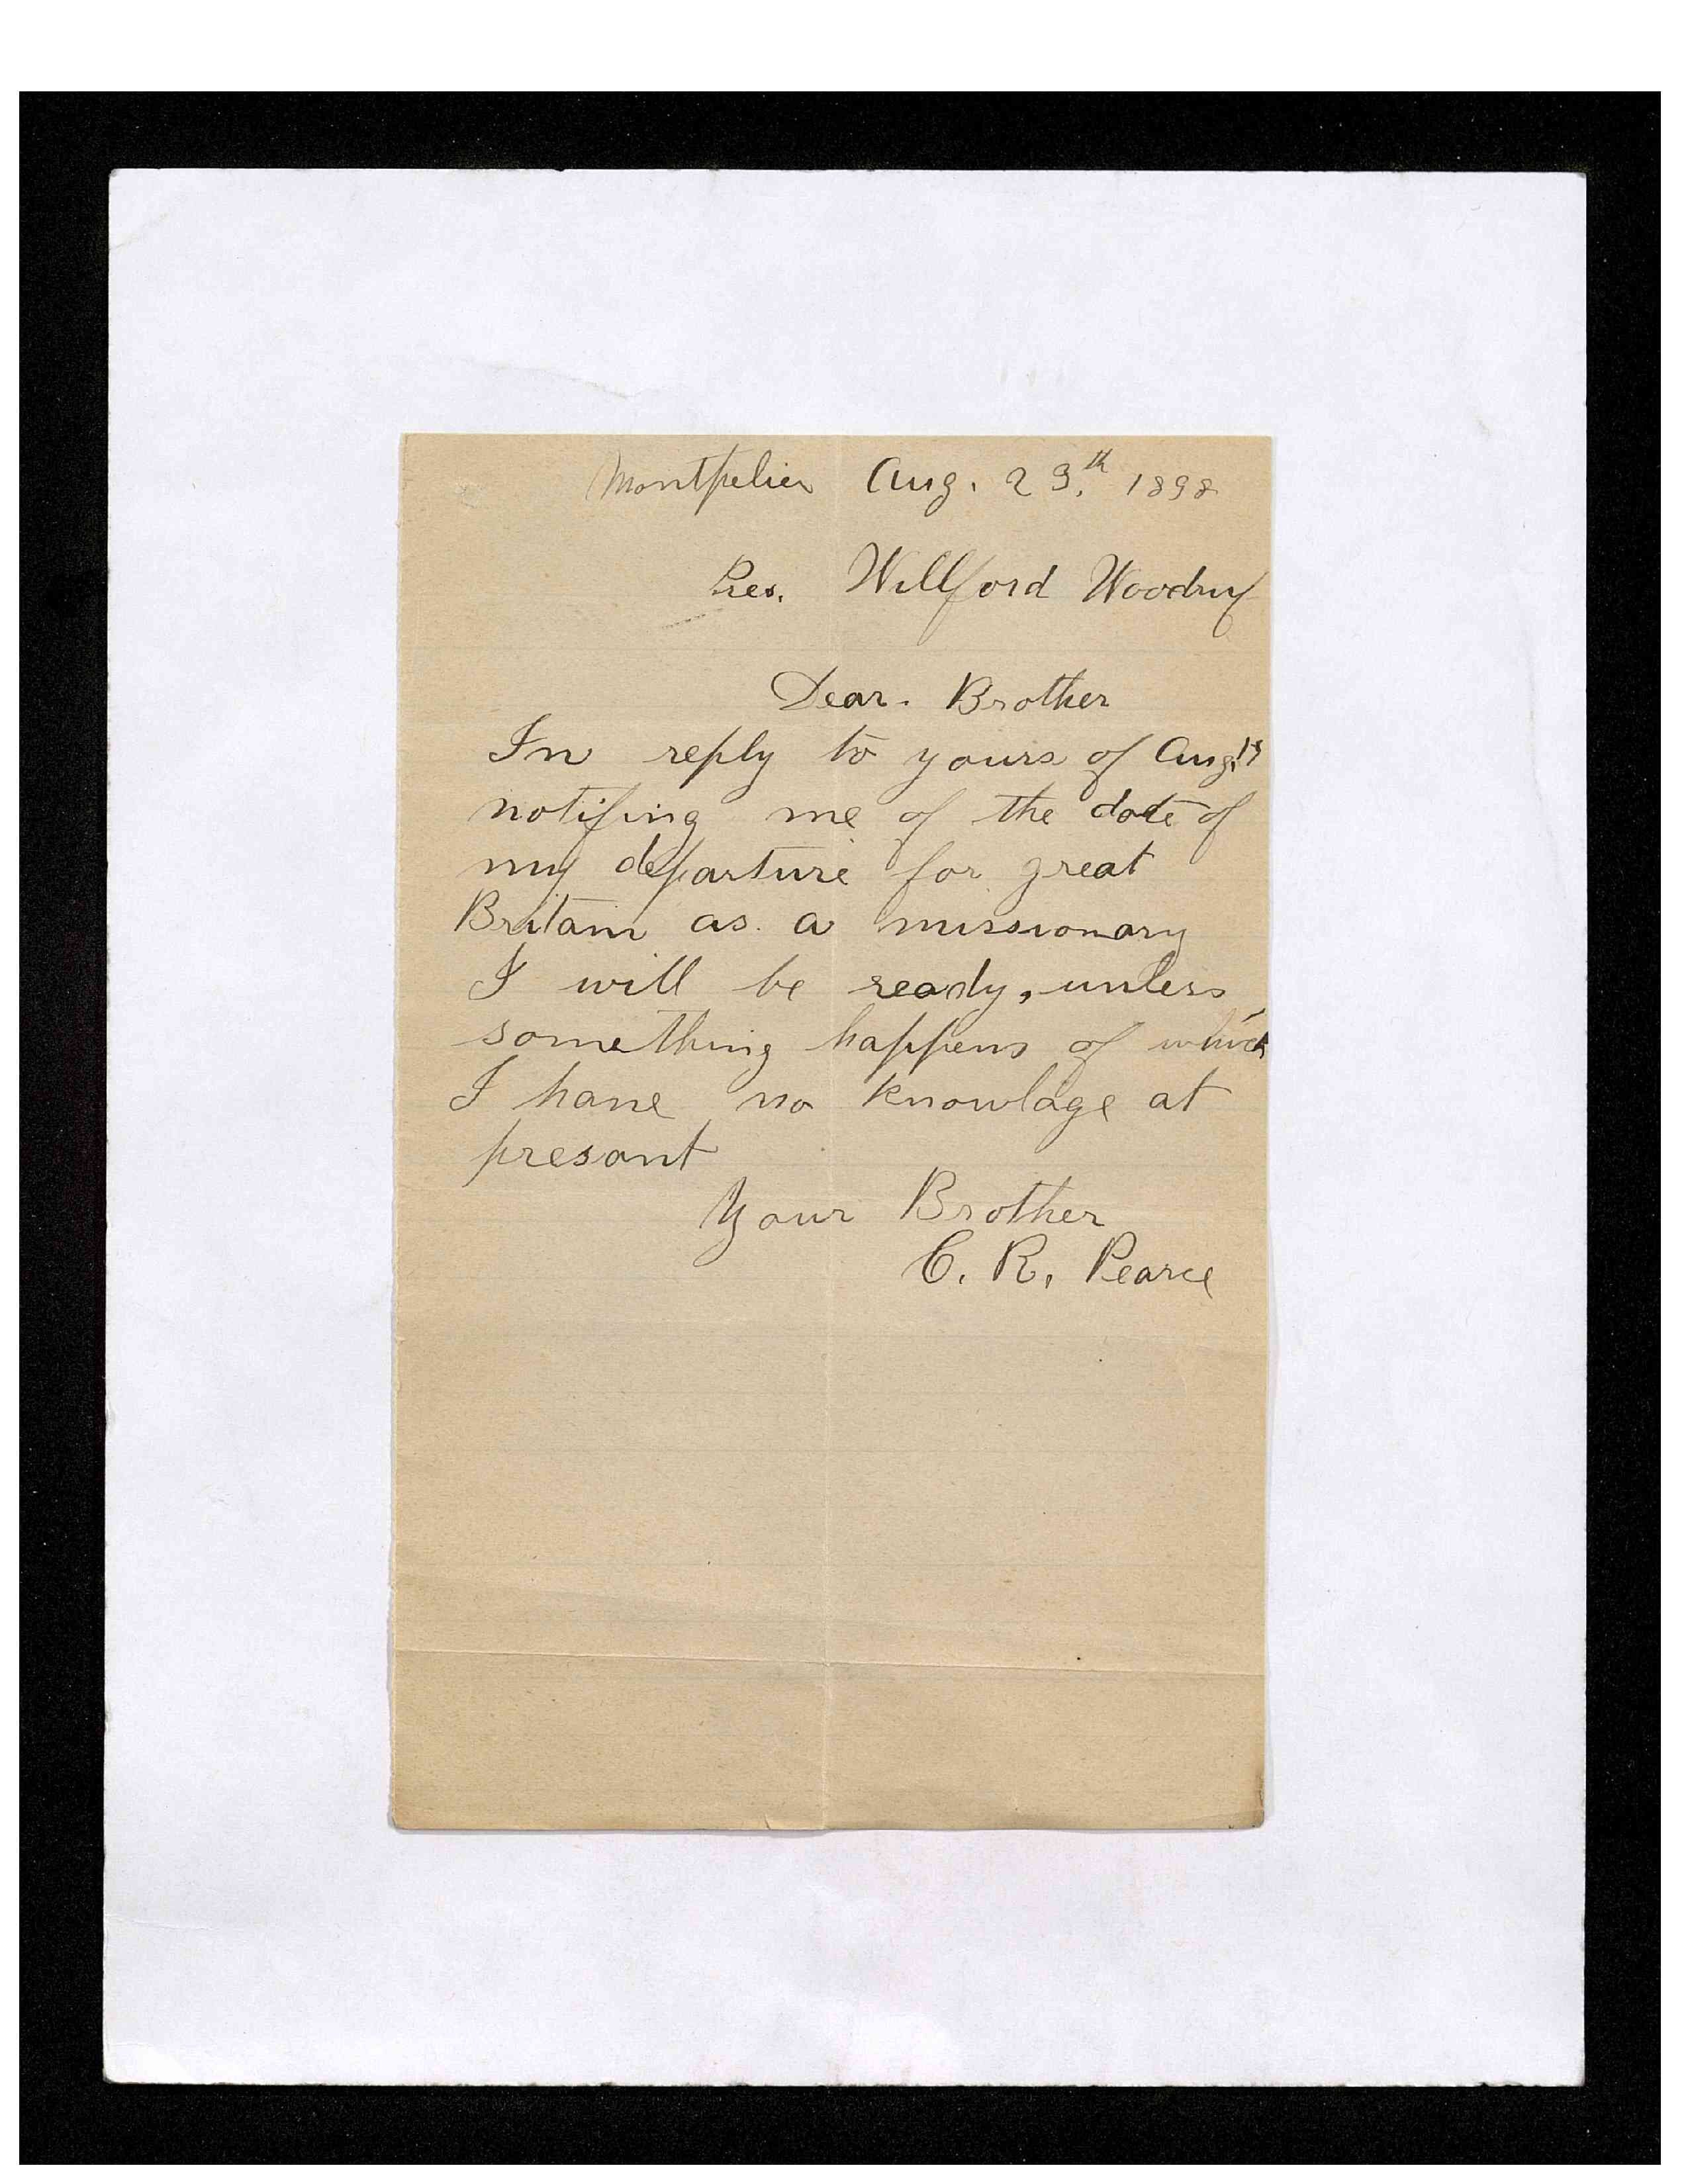 Montpelier Aug. 29.th 1898
Pres. Willford Woodruf
Dear. Brother
In reply to yours of Aug.
notifing me of the date of
my departure for great
Britain as a missionary
I will be ready, unless
something happens of which
I have no knowlage at
presant
Your Brother
C. R. Pearce